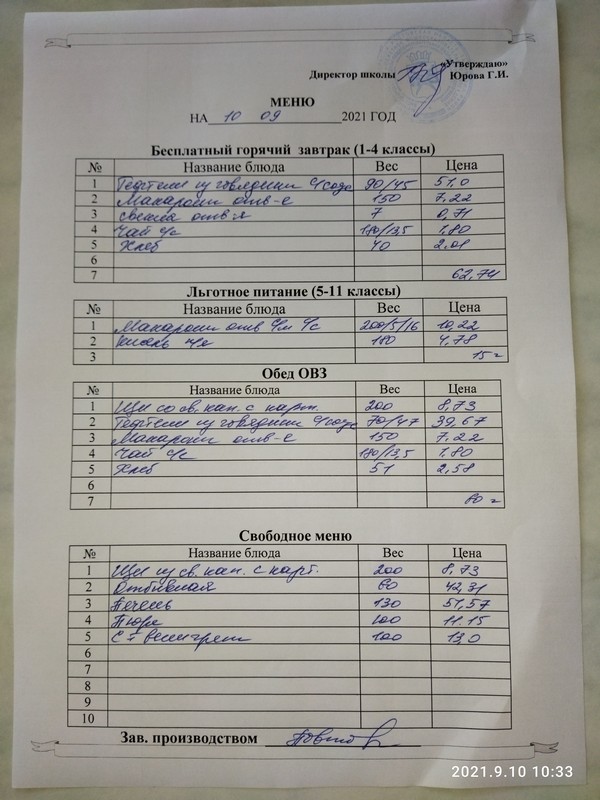 «Утверждаю»
Директор школы Юрова Г.И.
МЕНЮ
НА 10 09 2021 ГОД
Бесплатный горячий завтрак (1-4 классы)
№ Название блюда Вес Цена
1 Тефтели из говядины 90/45 51,0
2 Макароны отв-е 150 7,22
3 свекла отв-я 7 0,71
4 Чай с/с 180/13,5 1,80
5 Хлеб 40 2,01
6
7 62,74
Льготное питание (5-11 классы)
№ Название блюда Вес Цена
1 Макароны отв с/м с/с 200/5/16 10,22
2 кисель 180 4,78
3 15
Обед ОВЗ
№ Название блюда Вес Цена
1 Щи со св. кап. с карт. 200 8,73
2 Тефтели из говядины 70/47 39,67
3 Макароны отв-е 150 7.22
4 Чай с/с 180/13,5 1,80
5 Хлеб 51 2,58
6
7 60
Свободное меню
№ Название блюда Вес Цена
1 Щи из св. кап. с карт. 200 8,73
2 Отбивная 60 42,31
3 Печень 130 51,57
4 Пюре 100 11.15
5 винегрет 100 13,0
6
7
8
9
10
Зав. производством
2021.9.10 10:33